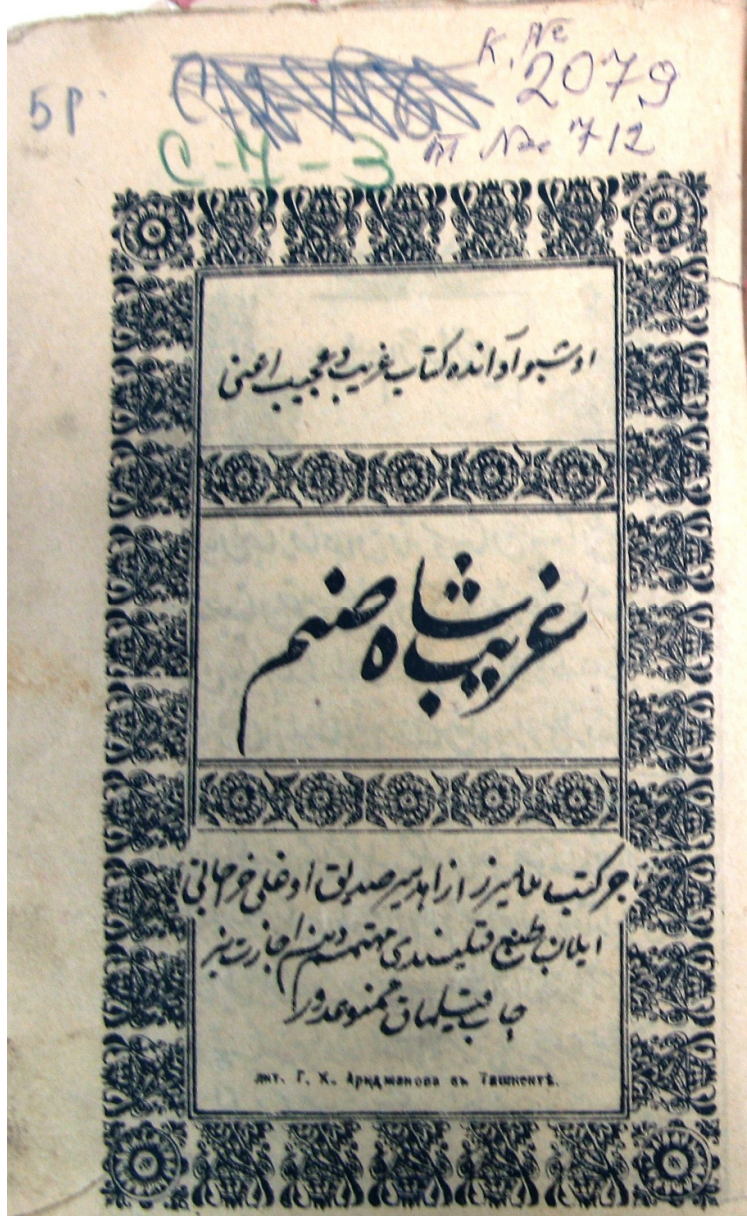 К. №
2079
5р.
С-7-3
т №= 712
اوشبو آوانده کتاب غریب و عجیب اعنی
غریب شاه صنم
تاجر کتب ملا میرزا زاهد میر صدیق اوغلی خرجاتی
ایلان طبع قیلیندی مهتممدین اجازت سیز
چاپ قیلماق ممنوعدور
лит. Г. Х. Арифджанова въ Ташкентѣ.